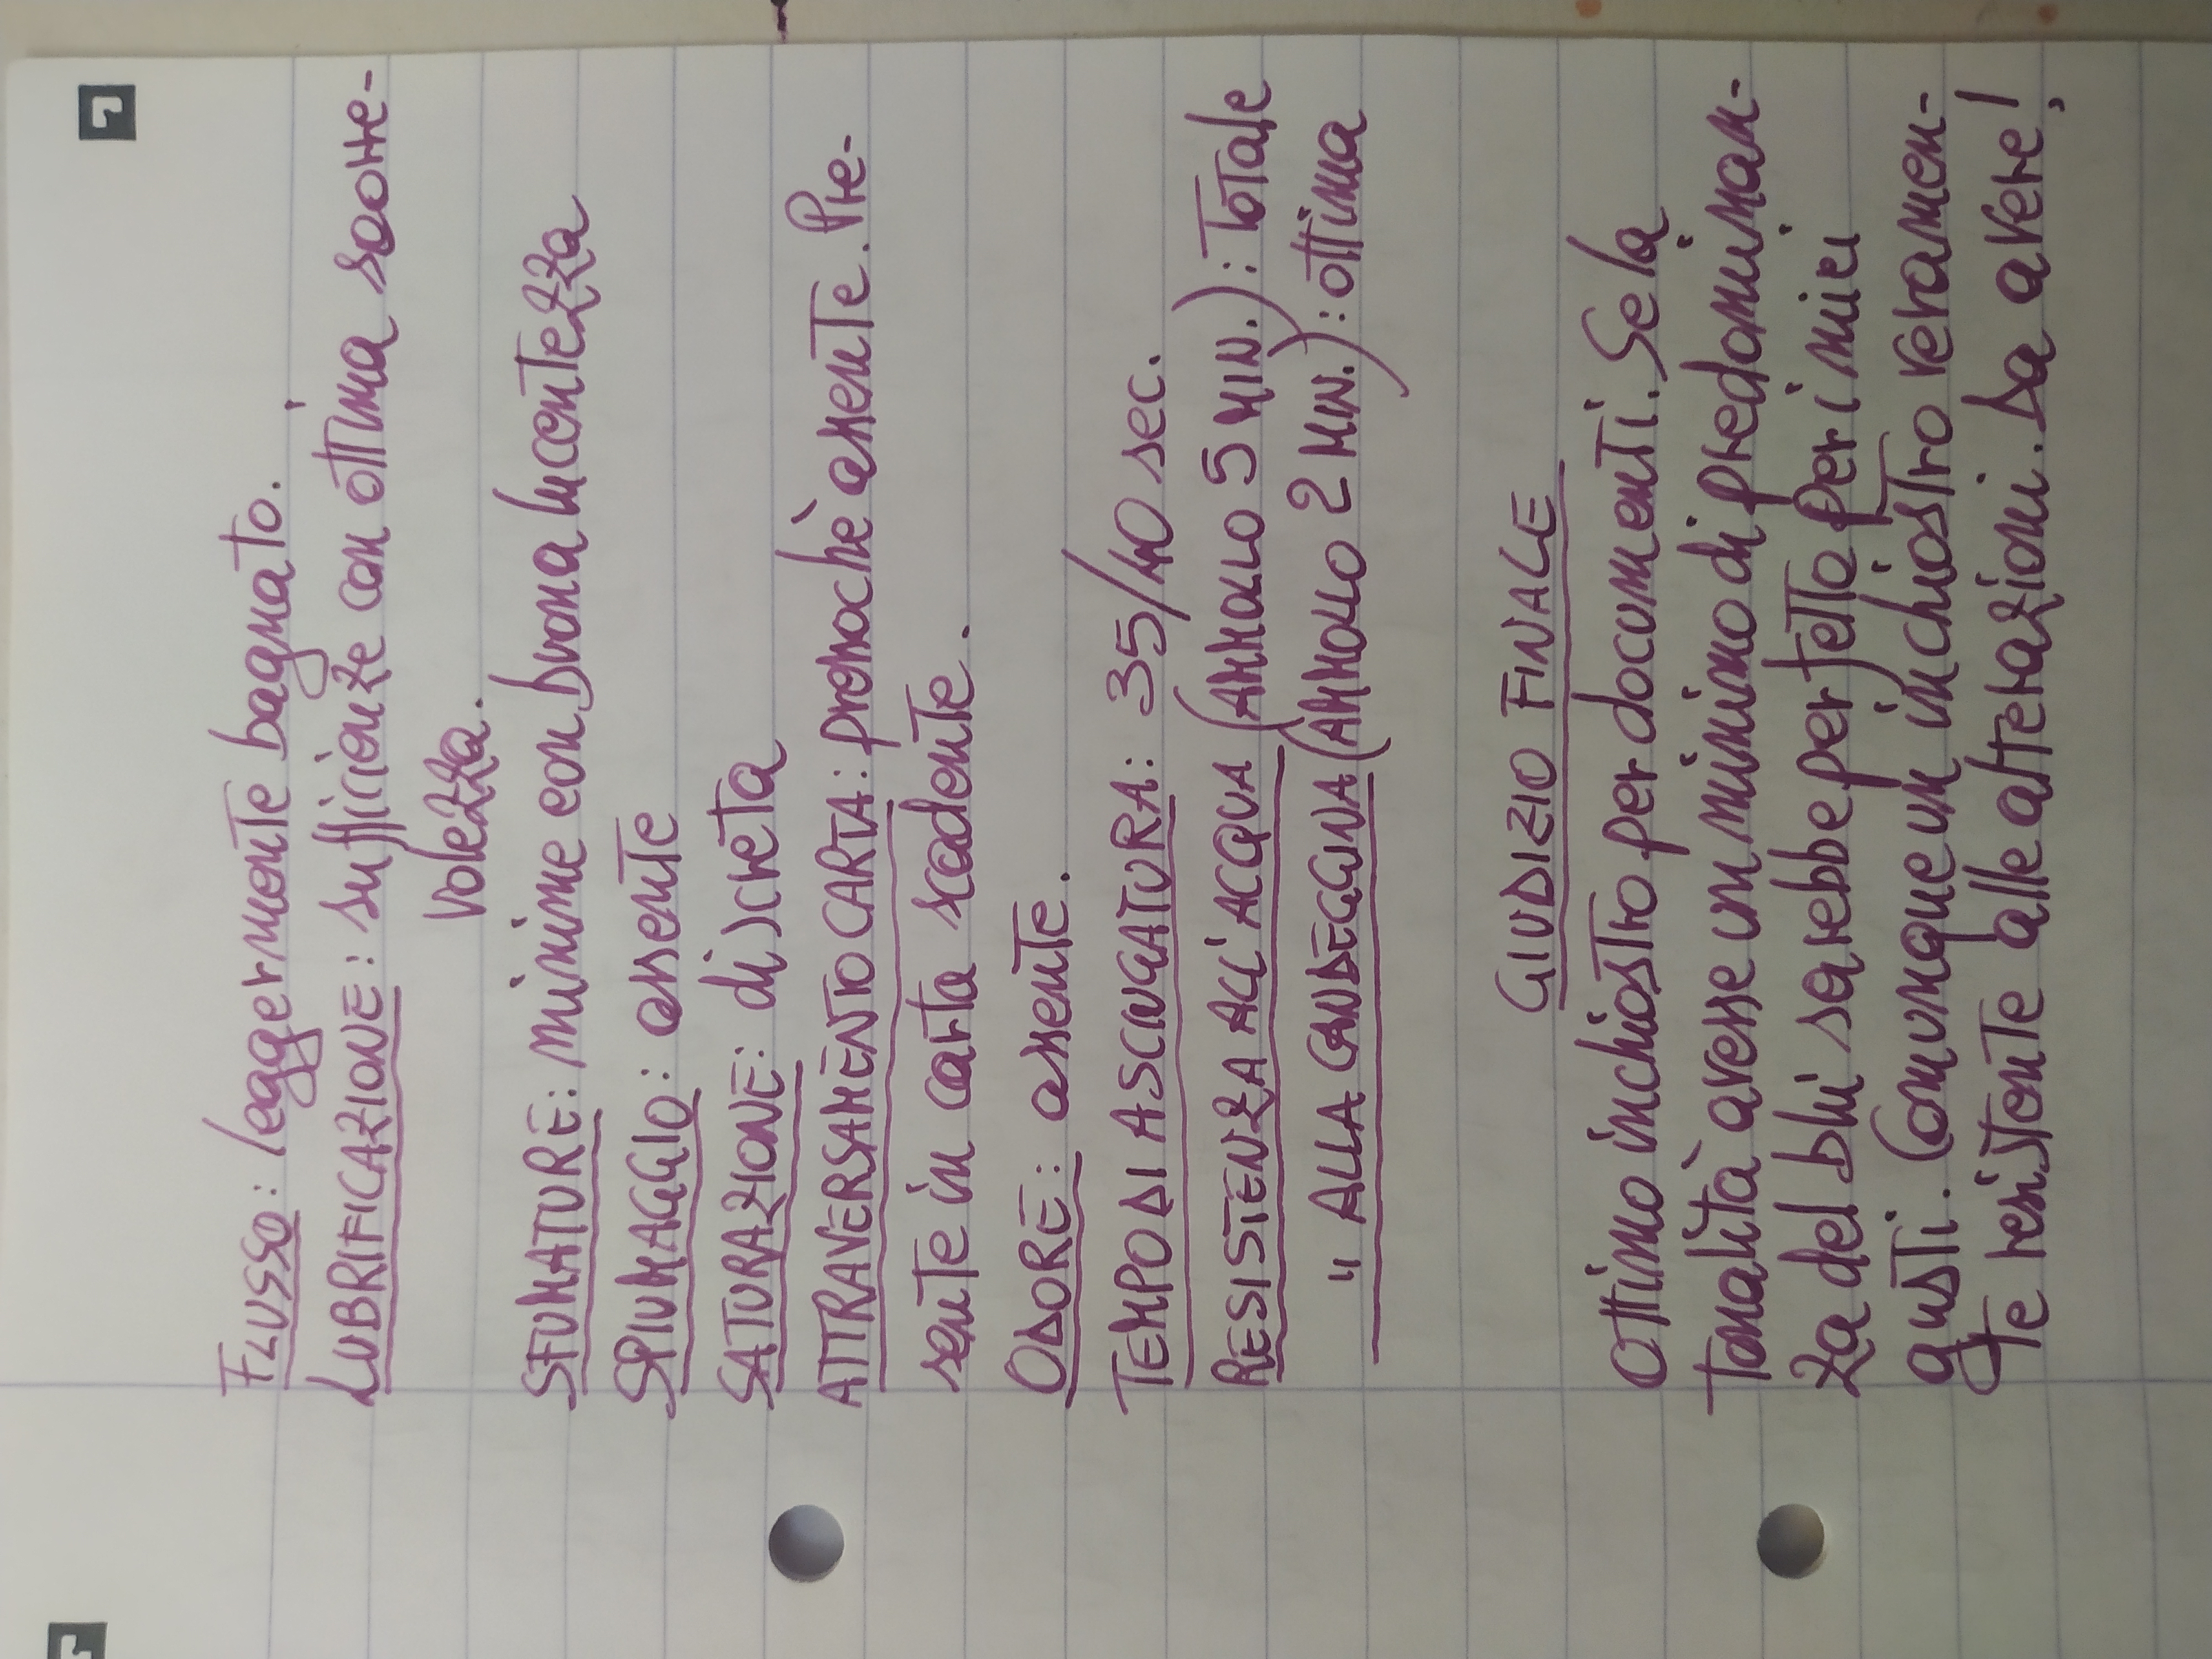 FLUSSO: leggermente bagnato.
LUBRIFICAZIONE: sufficienze con ottima scorre-
volezza.
SFUMATURE: minime con buona lucentezza
SPIUMAGGIO: assente
SATURAZIONE: discreta
ATTRAVERSAMENTO CARTA: pressochè assente. Pre-
sente in carta scadente.
ODORE: assente.
TEMPO DI ASCIUGATURA: 35/40 sec.
RESISTENZA ALL'ACQUA (AMMOLLO 5 MIN.): Totale
" ALLA CANDEGGINA (AMMOLLO 2 MIN.): ottima
GIUDIZIO FINALE
Ottimo inchiostro per documenti. Se la
tonalità avesse un minimo di predominan-
za del blu sarebbe perfetto per i miei
gusti. Comunque un inchiostro veramen-
te resistente alle alterazioni. Da avere!